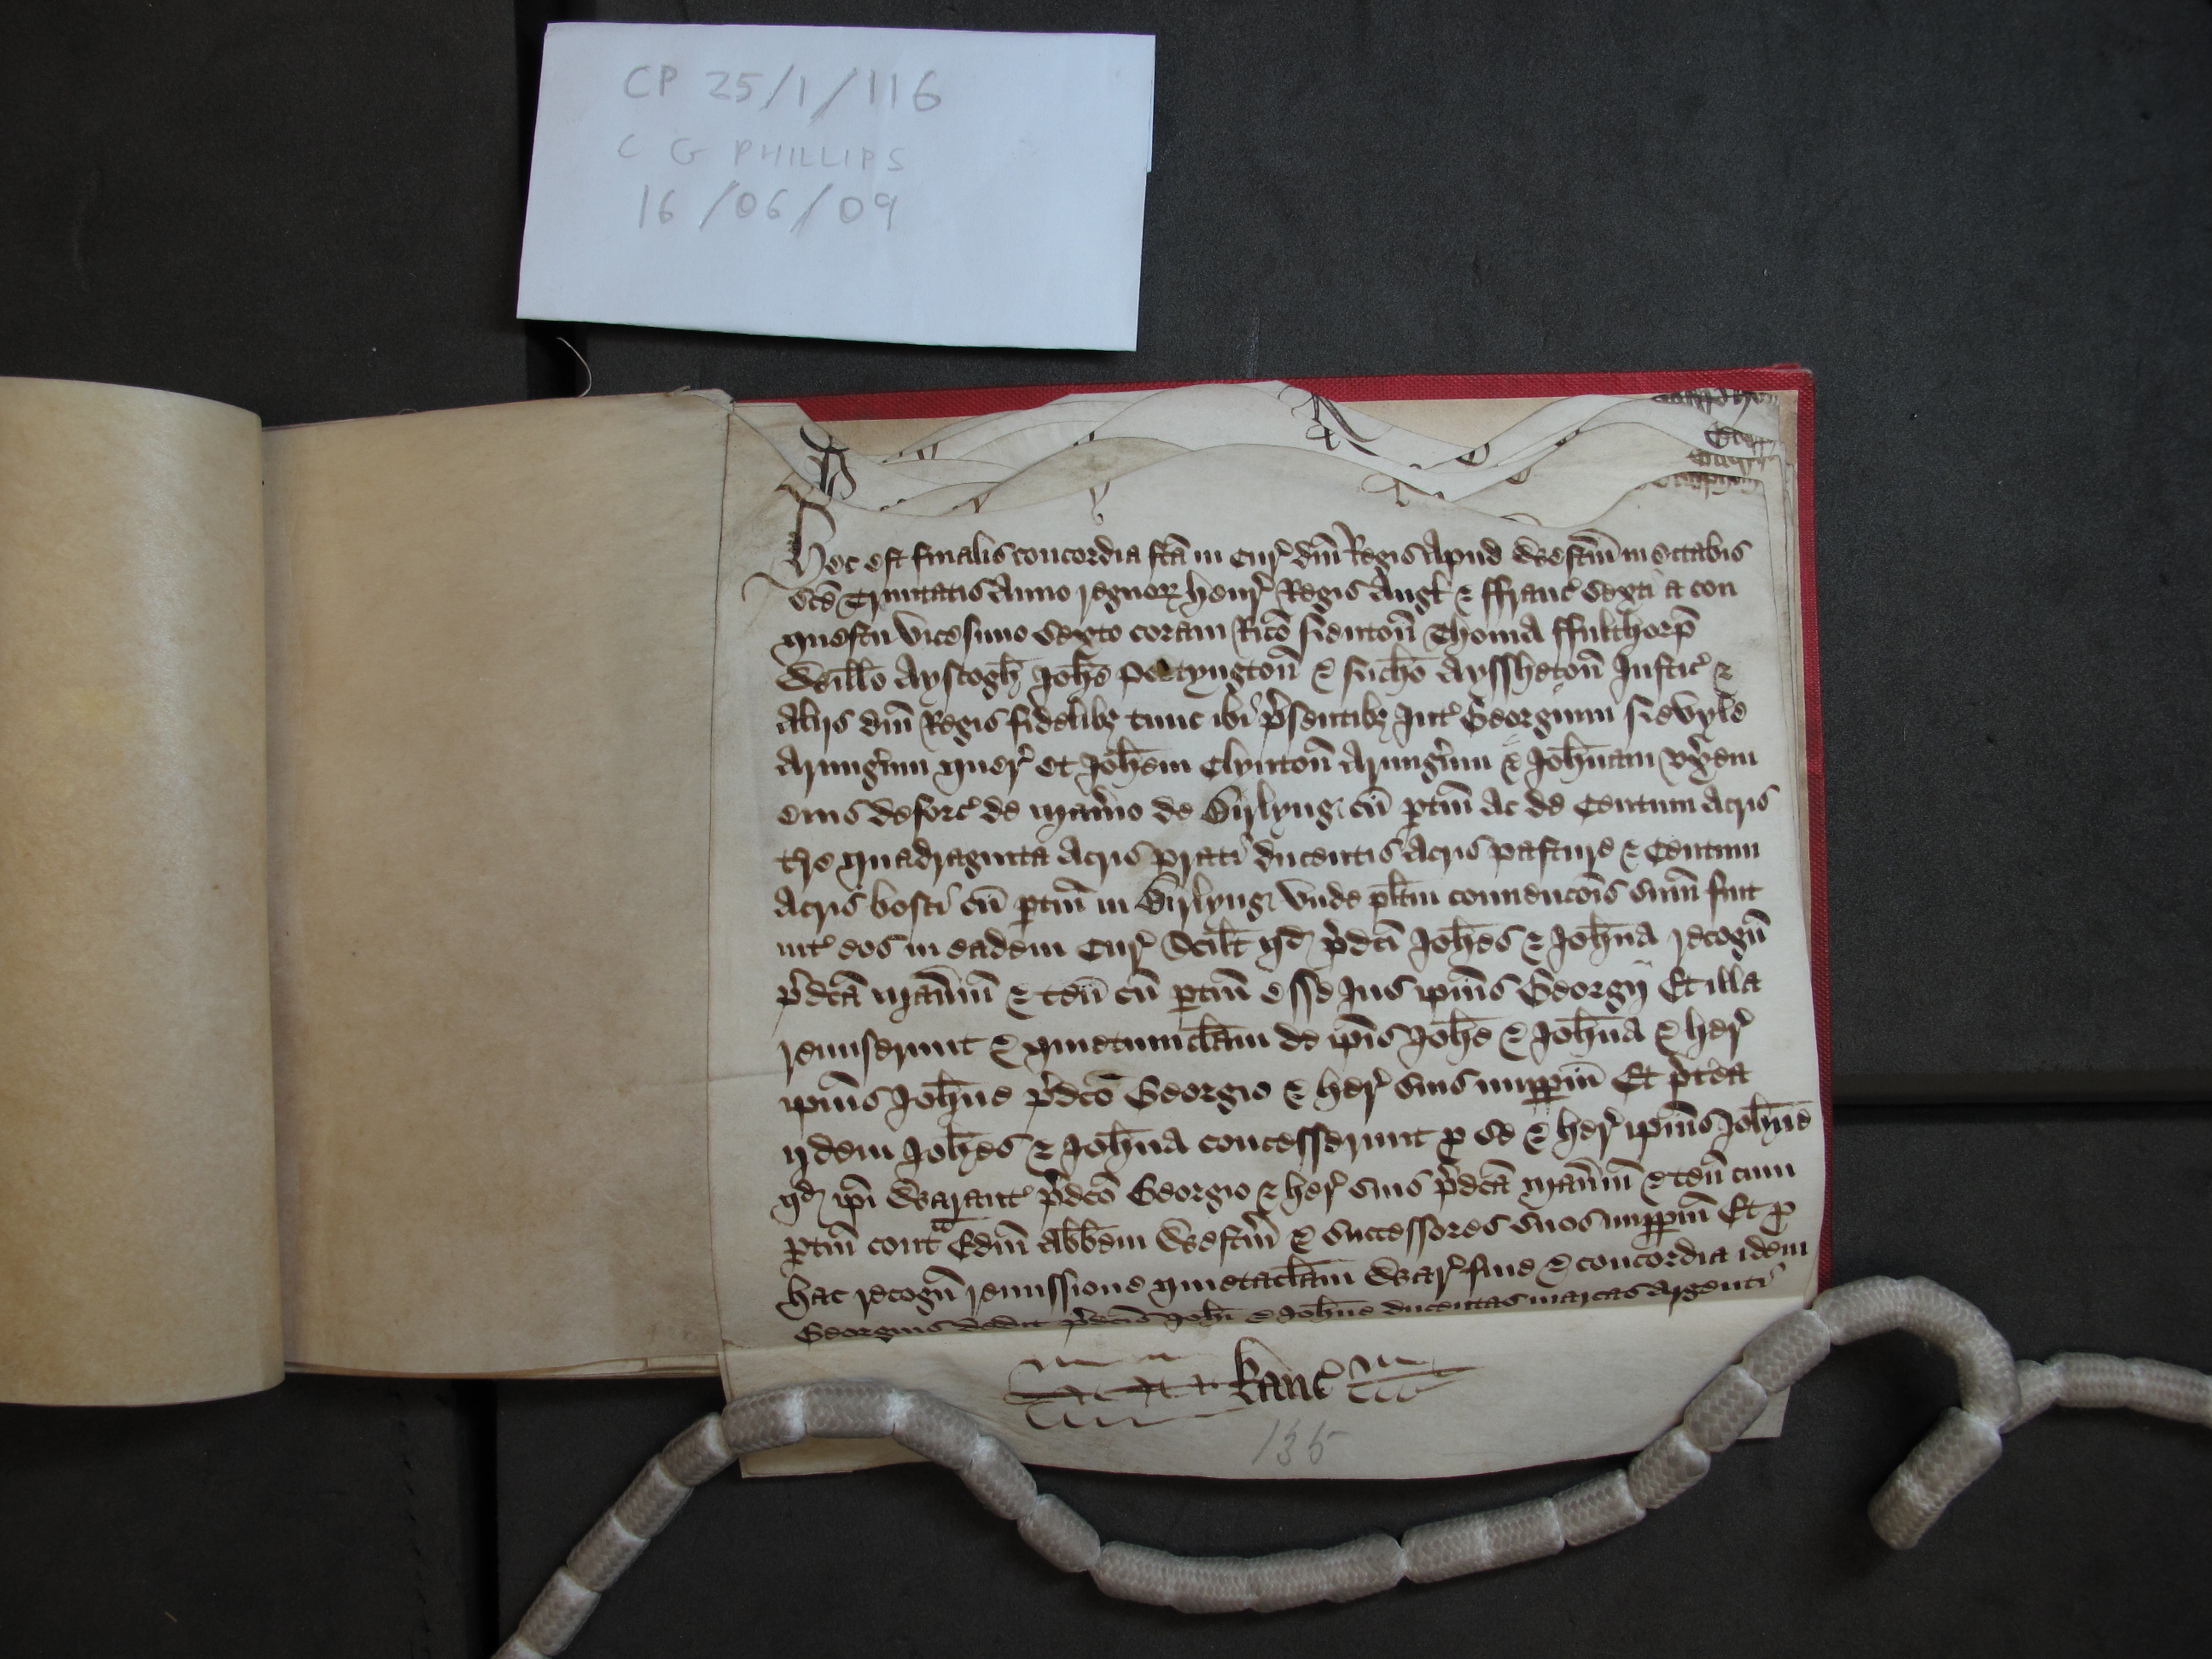 CP 25/1/116
C G PHILLIPS
16/06/09
Hoc est finalis concordia fcā in Cur' dñi Regis Apud Westm̄ in octabis
Sc̄e Trinitatis Anno regnoꝝ henr' Regis Angł & ffranc' Sexti a con
questu vicesimo sexto coram Ric̄o Neuton̄ Thoma ffulthorp̄
Willo Ayscogh̄ Joh̄e Portyngton̄ & Nich̄o Ayssheton̄ Justic' &
alijs dñi Regis fidelibꝫ tunc ibi p̄sentibꝫ Int' Georgium Nevyle
Armig̃um quer' et Joh̄em Clynton̄ Armig̃um & Joh̄nam vx̃em
eius deforc' de man̄io de Birlyng cū ptiñ ac de Centum acris
t̄re quadraginta acris prati ducentis acris pasture & Centum
acris bosci cū ptiñ in Birlyng vnde pl̄itm conuencōis sum̄ fuit
int' eos in eadem Cur' Scilt qd p̄dc̄i Joh̄es & Joh̄na recogn̄
p̄dc̄a man̄iū & ten̄ cū ptiñ esse Jus ip̄ius Georgij Et illa
remiserunt & quietumclam̄ de ip̄is Joh̄e & Joh̄na & her'
ip̄ius Joh̄ne p̄dc̄o Georgio & her' suis imppm̄ Et p̄tea
ijdem Joh̄es & Joh̄na concesserunt ꝑ se & her' ip̄ius Joh̄ne
qd ip̄i Warant' p̄dc̄o Georgio & her' suis p̄dc̄a man̄iū & ten̄ cum
ptiñ cont^a Edm̄ Abb̄em Westm̄ & successores suos imppm̄ Et ꝑ
hac recogn̄ remissione quietaclam̄ War' fine & concordia idem
Georgius dedit p̄dc̄is Joh̄i & Joh̄ne ducentas marcas argenti
Kanc'
135